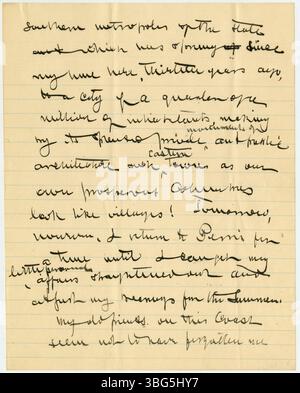 Southern metropolis of the State
and which has sprung up since
my time here, thirteen years ago,
to a city of a quarter of a
million of inhabitants, making
my its private, and public
architectural eastern towns as our
own prosperous Columbus
look like villages! Tomorrow,
however, I return to Perris for
a time until I can get my
little personal affairs straightened out and
adjust my for the Summer.
My old friends on this Coast
seem not to have forgotten me
a alamy
alamy
Image ID: 3BG5HY7
www.alamy.com